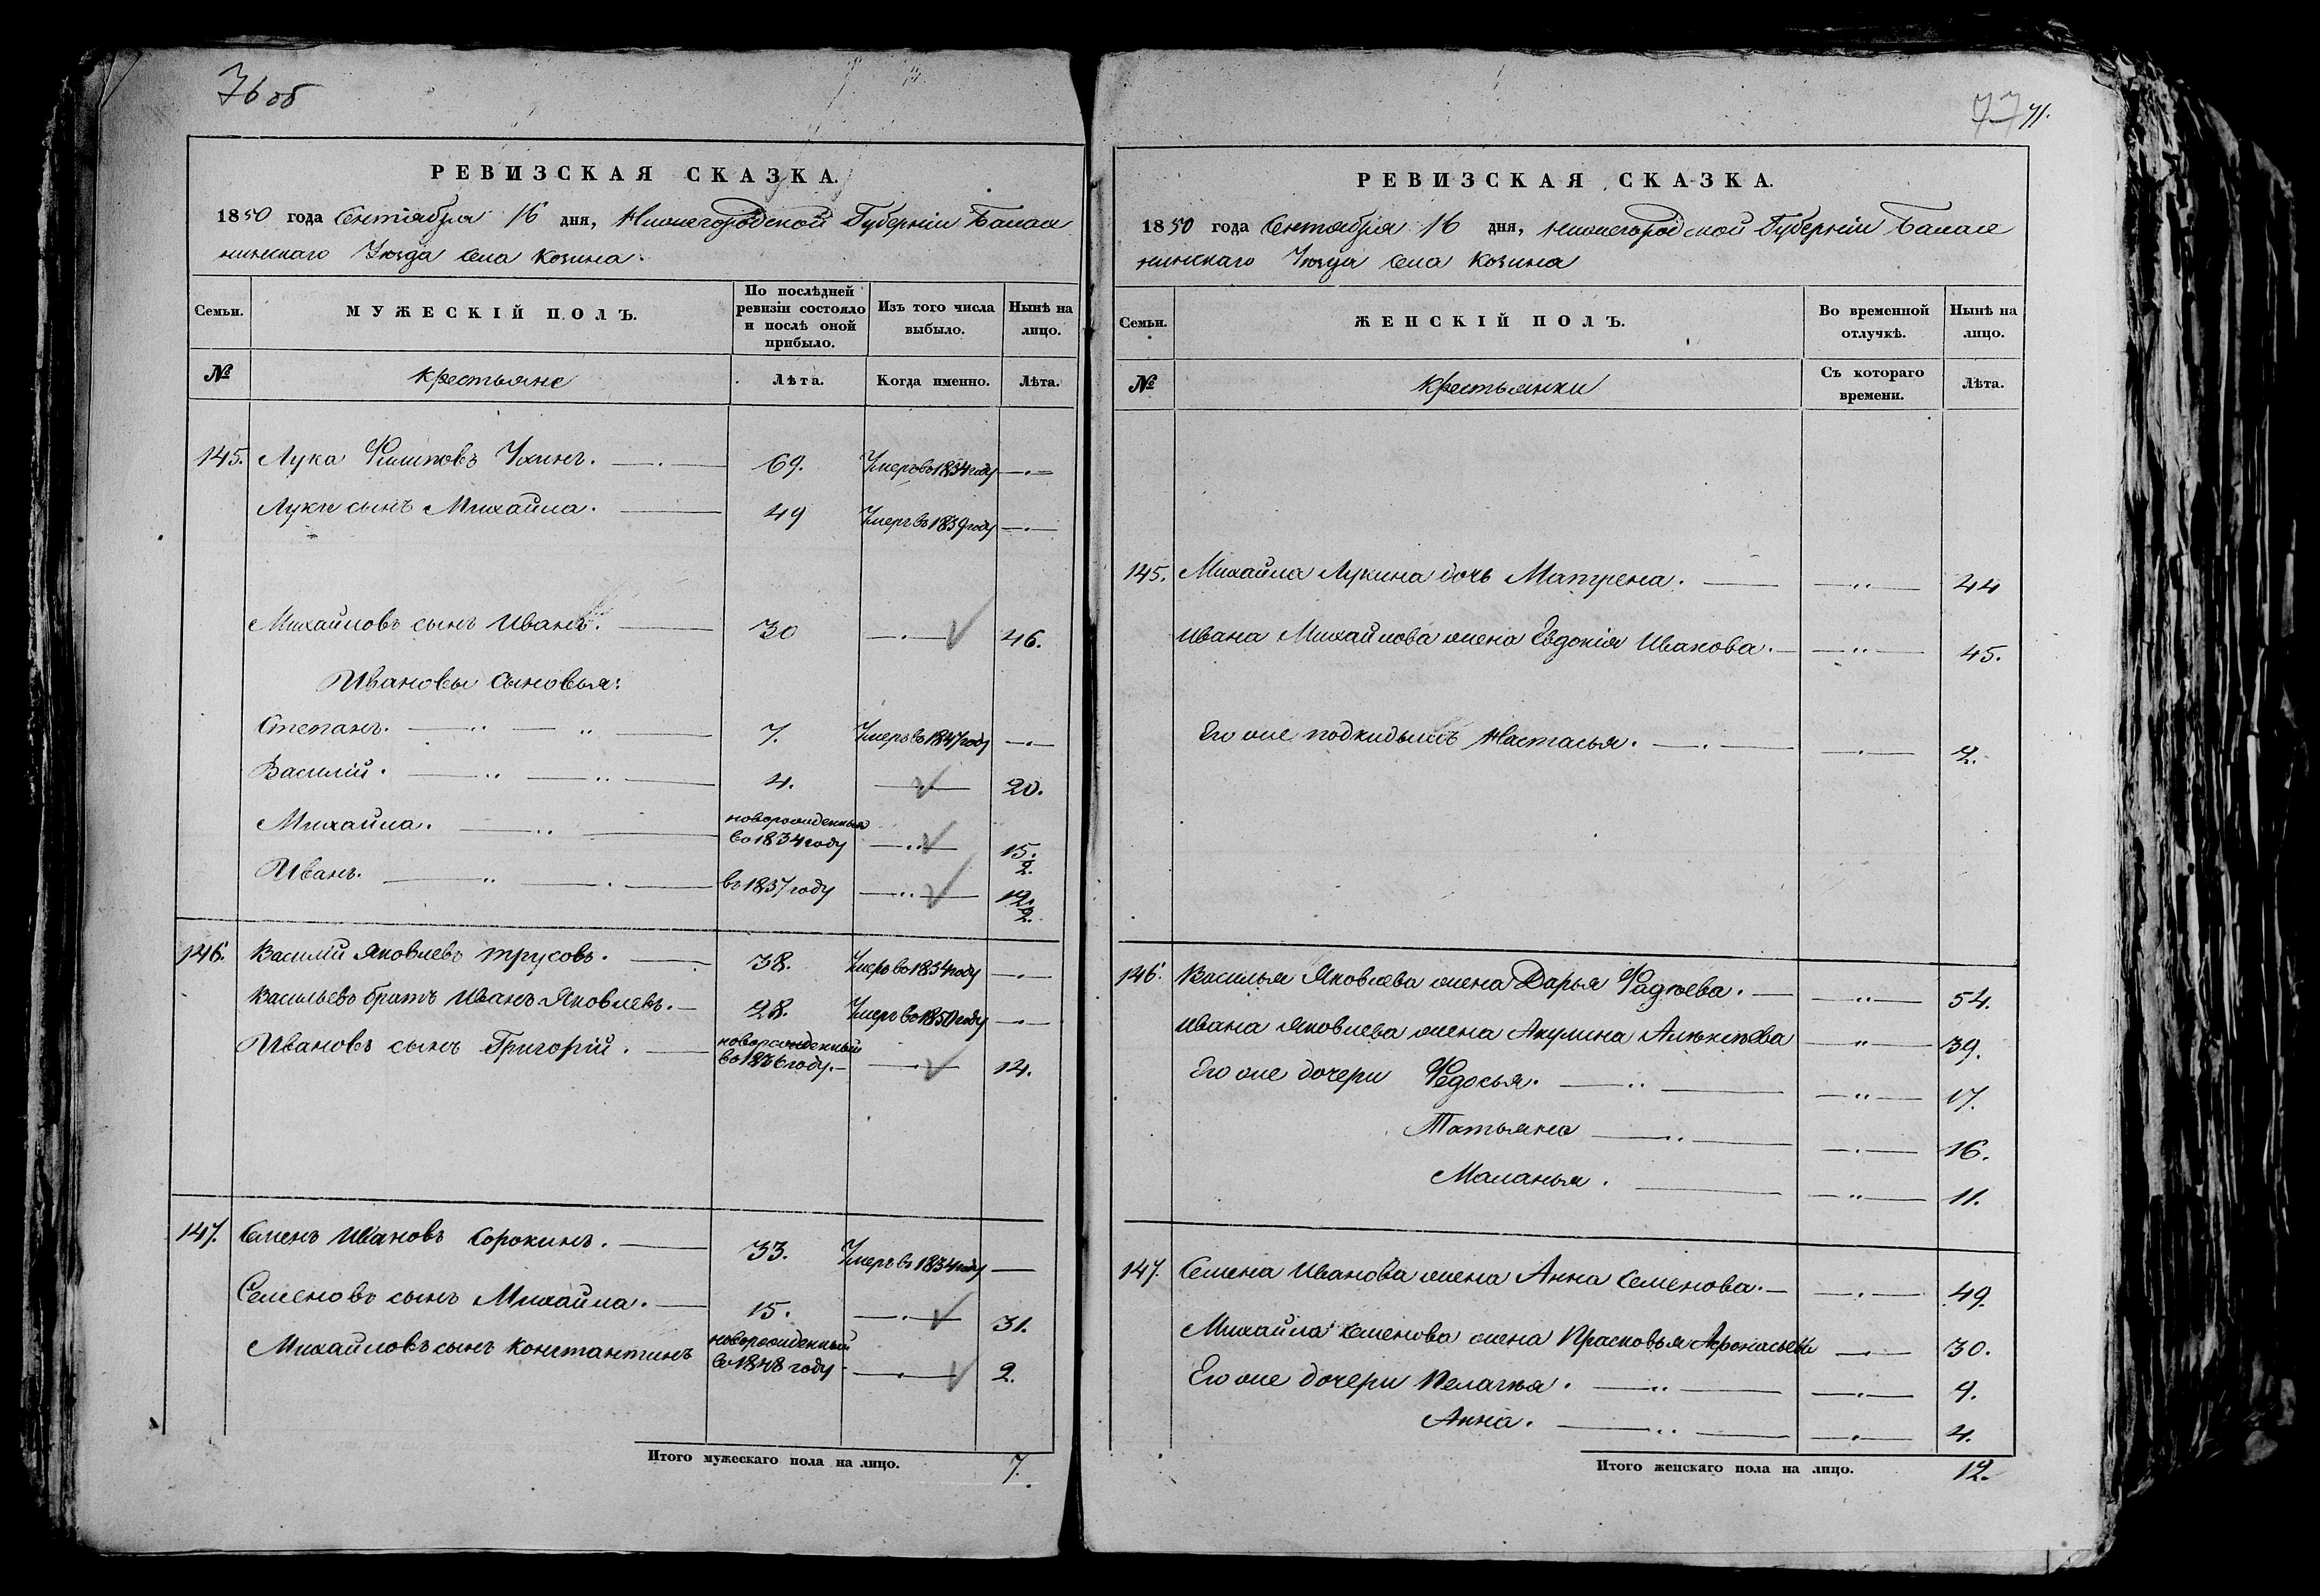 76 об
РЕВИЗСКАЯ СКАЗКА.
1850 года Сентября 16 дня, Нижегородской Губернiи Балах
нинскаго Уѣзда села Козина.
Семьи.
МУЖЕСКIЙ ПОЛЪ.
По послѣдней ревизiи состояло и послѣ оной прибыло.
Изъ того числа выбыло.
Нынѣ на лицо.
№ Крестьяне Лѣта. Когда именно. Лѣта.
145. Лука Филиповъ 69. Умеръ въ 1834 году
Луки сынъ Михайла. 49 Умеръ въ 1839 году
Михайловъ сынъ Иванъ. 30 46.
Ивановы сыновья:
Степанъ. 7. Умеръ въ 1847 году
Василiй. 4. 20.
Михайла. новорожденный во 1834 году 15. 2.
Иванъ. въ 1837 году 12. 2.
146. Василiй Яковлевъ Трусовъ. 38. Умеръ во 1834 году
Васильевъ братъ Иванъ Яковлевъ. 28. Умеръ во 1850 году
Ивановъ сынъ Григорiй. новорожденный во 1836 году. 14.
147. Семенъ Ивановъ Сорокинъ. 33. Умеръ въ 1834 году
Семеновъ сынъ Михайла. 15. 31.
Михайловъ сынъ Константинъ новорожденный во 1848 году 2.
Итого мужескаго пола на лицо. 7.
77 71.
РЕВИЗСКАЯ СКАЗКА.
1850 года Сентября 16 дня, Нижегородской Губернiи Балах
нинскаго Уѣзда села Козина
Семьи.
ЖЕНСКIЙ ПОЛЪ.
Во временной отлучкѣ.
Нынѣ на лицо.
№ Крестьянки Съ котораго времени. Лѣта.
145. Михайла Лукина дочь Матрена. 44
Ивана Михайлова жена Евдокiя Иванова. 45.
Его же подкидышъ Настасья. 2.
146. Василья Яковлева жена Дарья Фадѣева. 54.
Ивана Яковлева жена Акулина Алѣксѣева 39.
Его же дочери Федосья. 17.
Татьяна 16.
Маланья. 11.
147. Семена Иванова жена Анна Семенова. 49.
Михайла Семенова жена Прасковья Афонасьева 30.
Его же дочери Пелагѣя. 9.
Анна. 4.
Итого женскаго пола на лицо. 12.